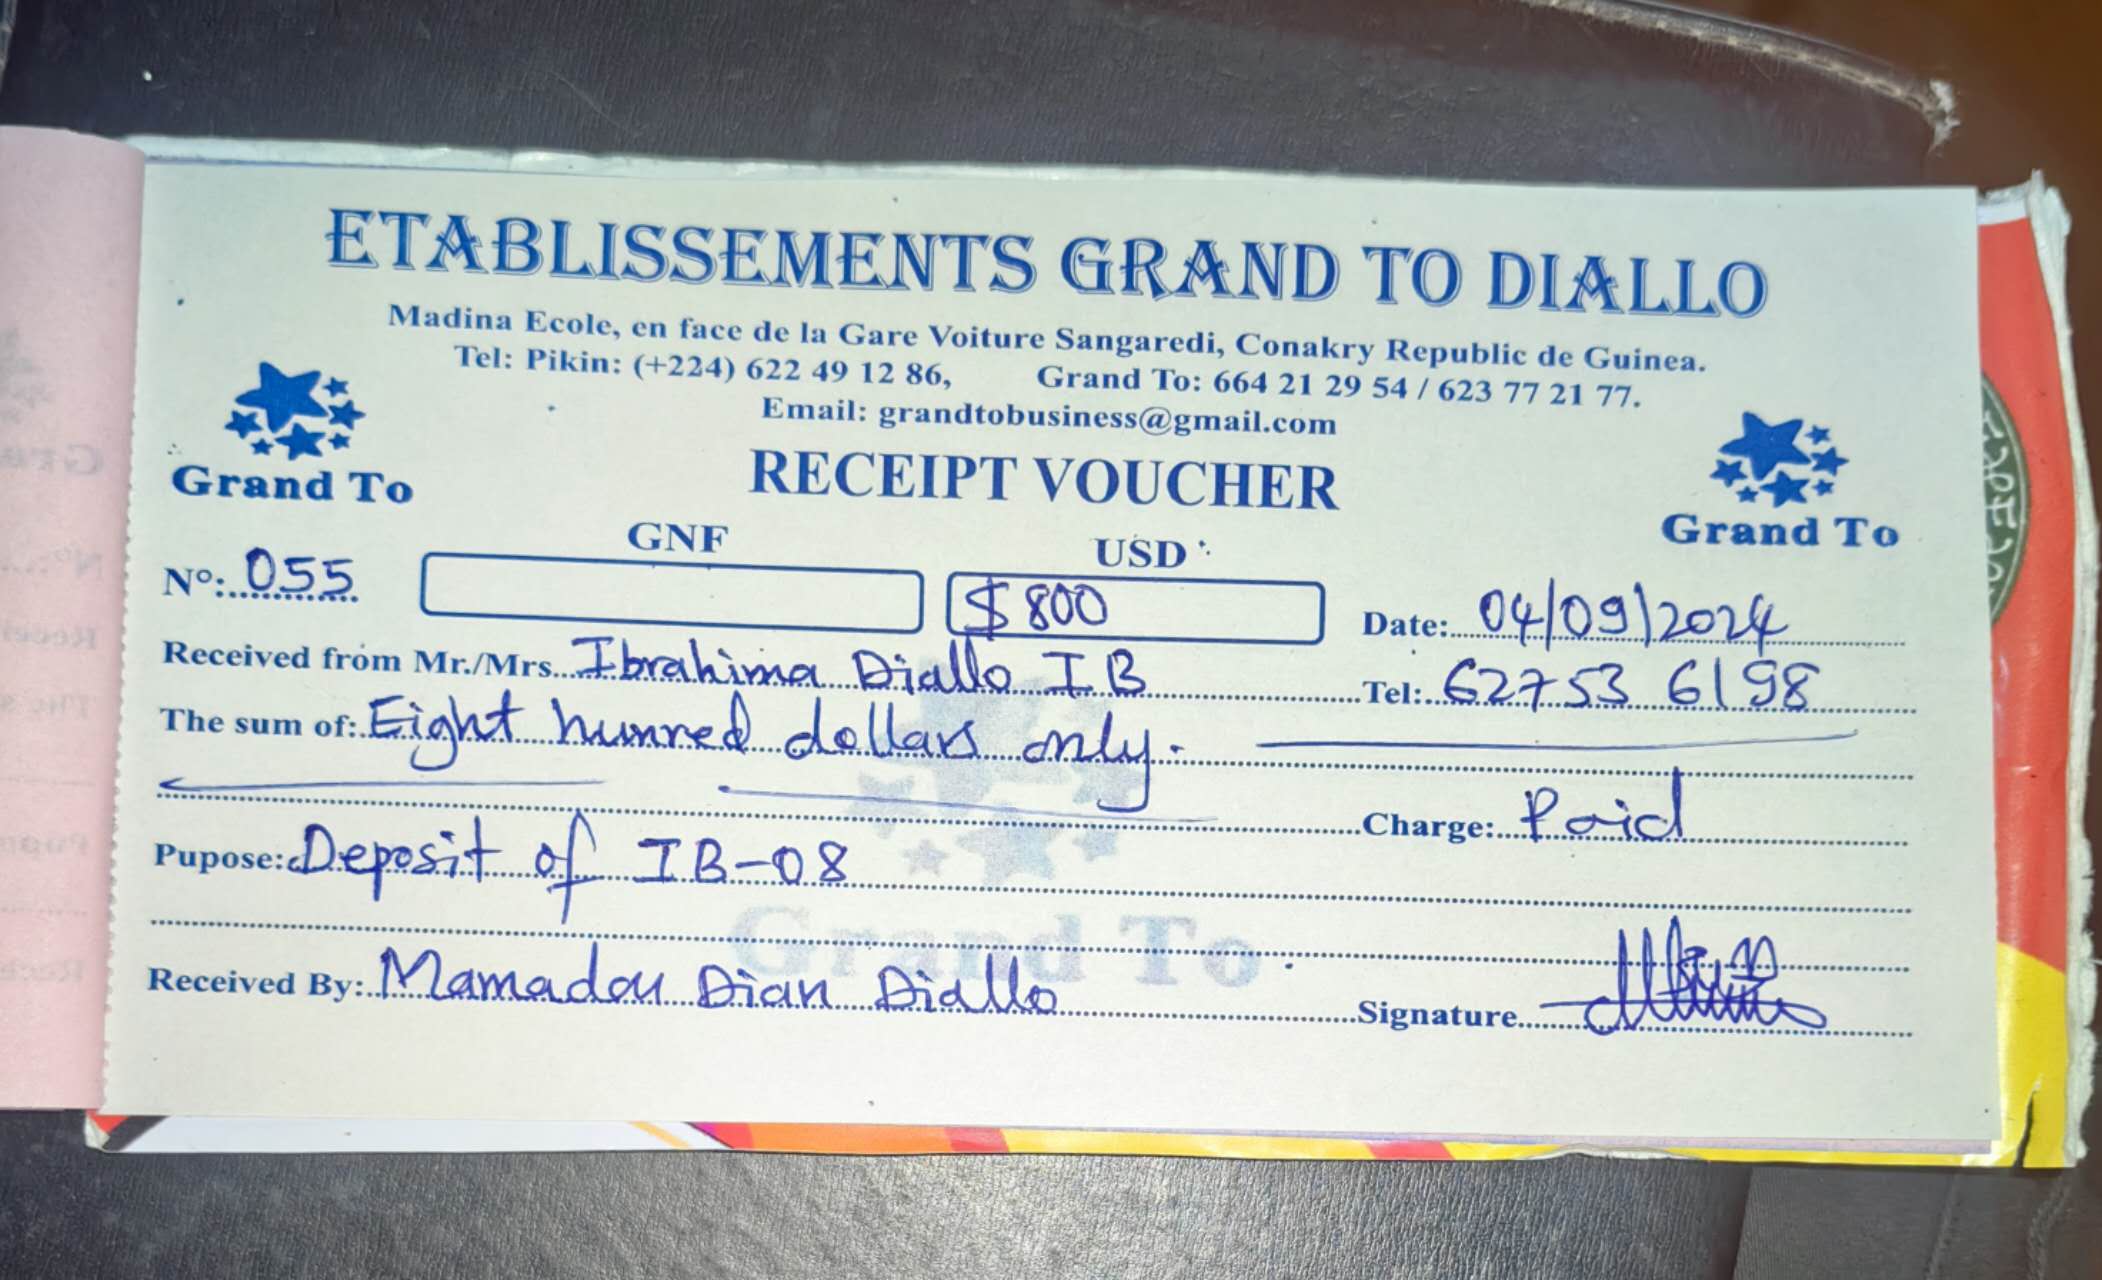 ETABLISSEMENTS GRAND TO DIALLO
Madina Ecole, en face de la Gare Voiture Sangaredi, Conakry Republic de Guinea.
Tel: Pikin: (+224) 622 49 12 86, Grand To: 664 21 29 54 / 623 77 21 77.
Email: grandtobusiness@gmail.com
Grand To
RECEIPT VOUCHER
Grand To
GNF
USD
Nº: 055
$ 800
Date: 04/09/2024
Received from Mr./Mrs. Ibrahima Diallo IB Tel: 62753 6198
The sum of: Eight hunred dollars only.
Charge: Paid
Pupose: Deposit of IB-08
Grand To
Received By: Mamadou Dian Diallo Signature